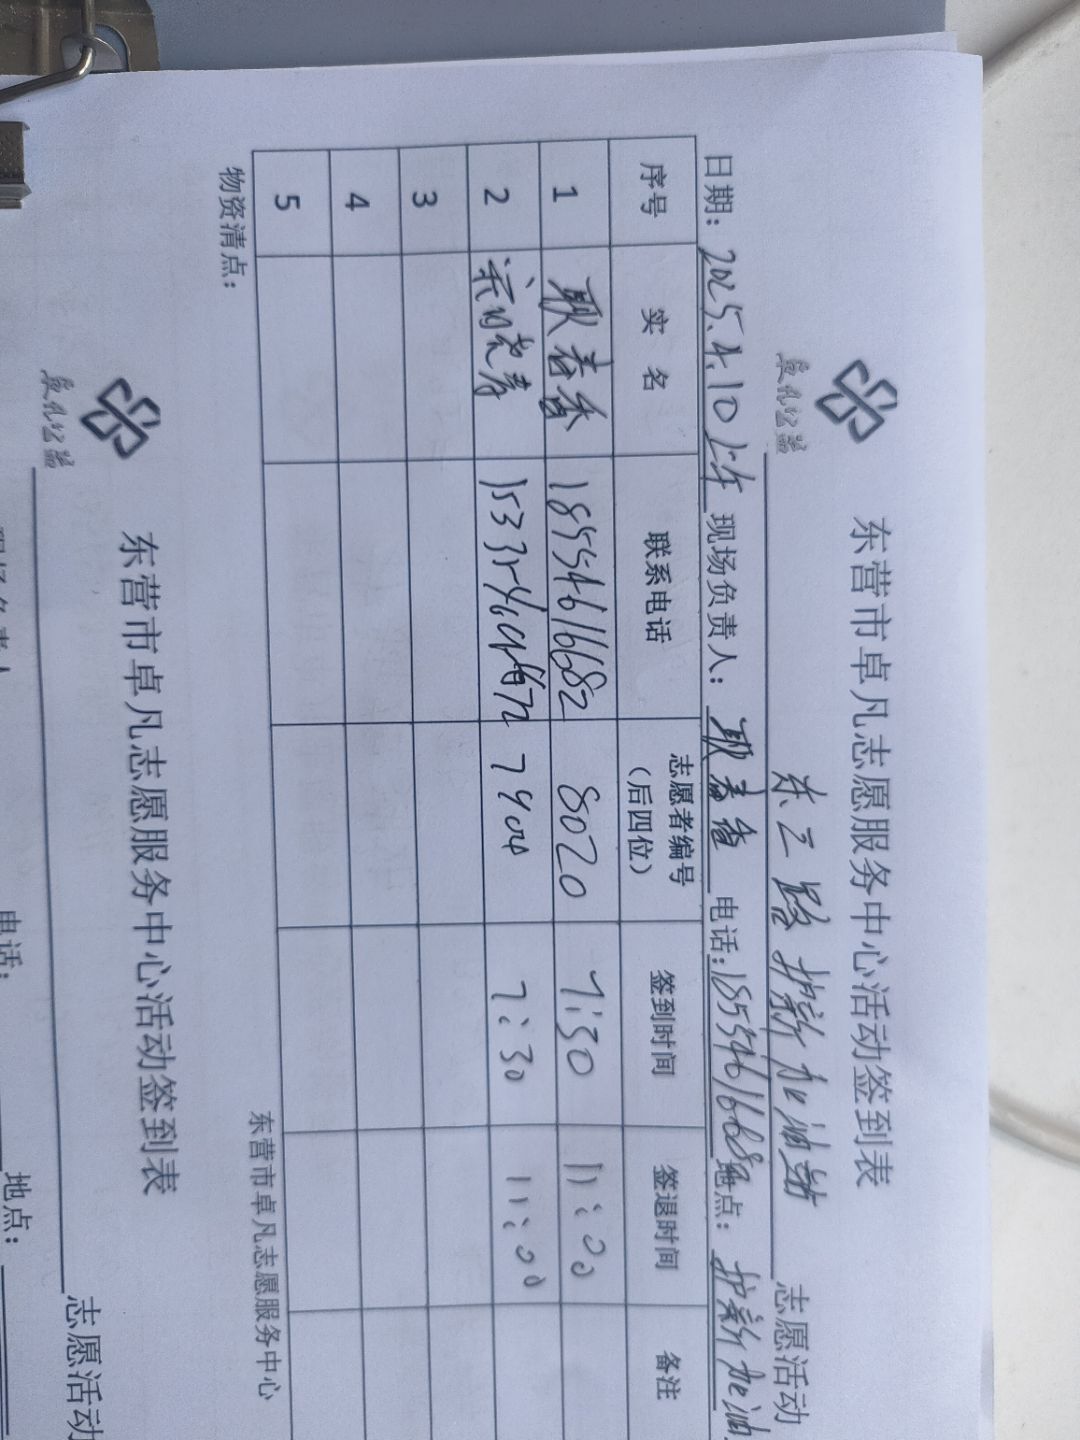 卓凡公益
东营市卓凡志愿服务中心活动签到表
东三路护新加油站 志愿活动
日期：2025.4.10上午 现场负责人：耿春香 电话：18554616682 地点：护新加油
序号 实名 联系电话 志愿者编号（后四位） 签到时间 签退时间 备注
1 耿春香 18554616682 8020 7:30 11:00
2 7904 7:30 11:00
3
4
5
物资清点： 东营市卓凡志愿服务中心
卓凡公益
东营市卓凡志愿服务中心活动签到表
志愿活动
现场负责人 电话： 地点：